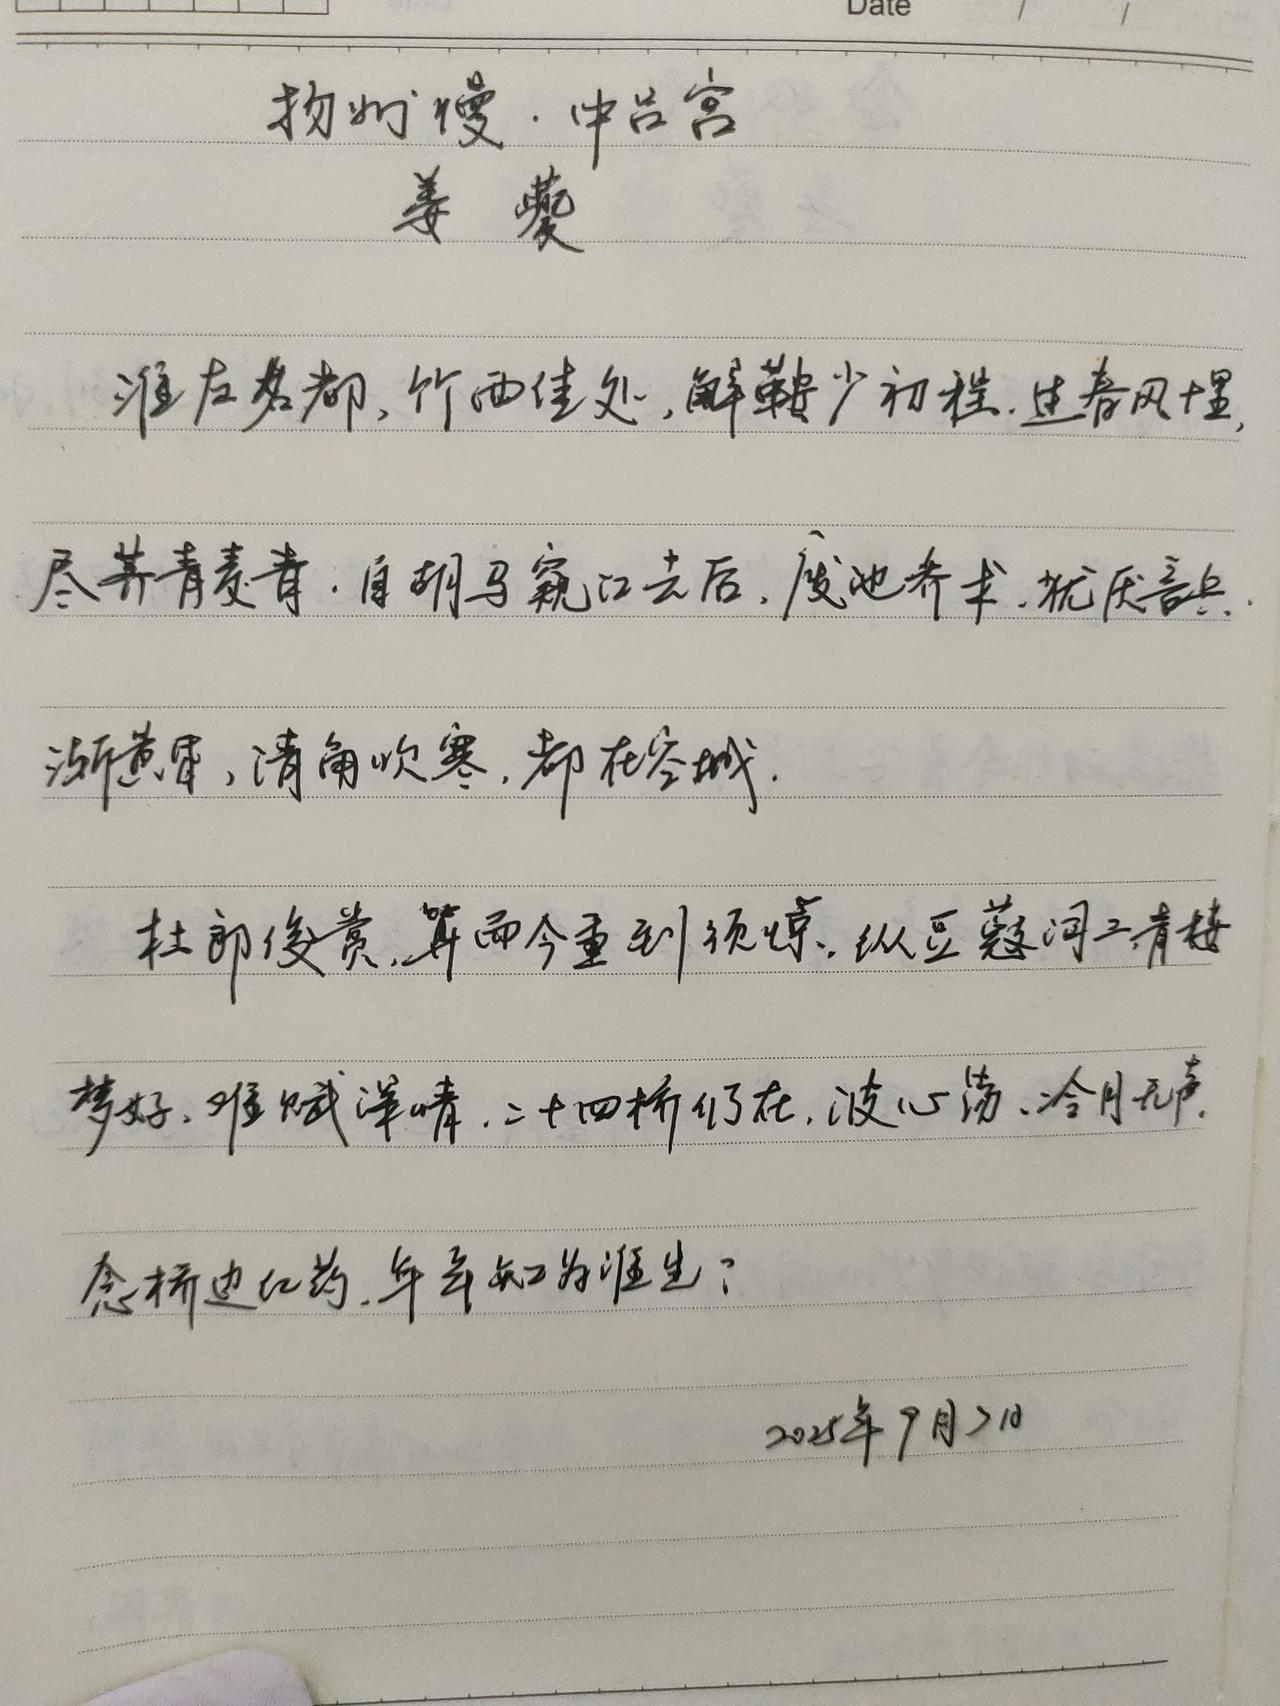 Date / /
扬州慢.中吕宫
姜夔
淮左名都,竹西佳处,解鞍少初程.过春风十里,
尽荠青麦青.自胡马窥江去后,废池乔木.犹厌言兵.
渐黄昏,清角吹寒,都在空城.
杜郎俊赏,算而今重到须惊.纵豆蔻词工,青楼
梦好、难赋深情.二十四桥仍在,波心荡、冷月无声.
念桥边红药.年年知为谁生?
2025年9月2日